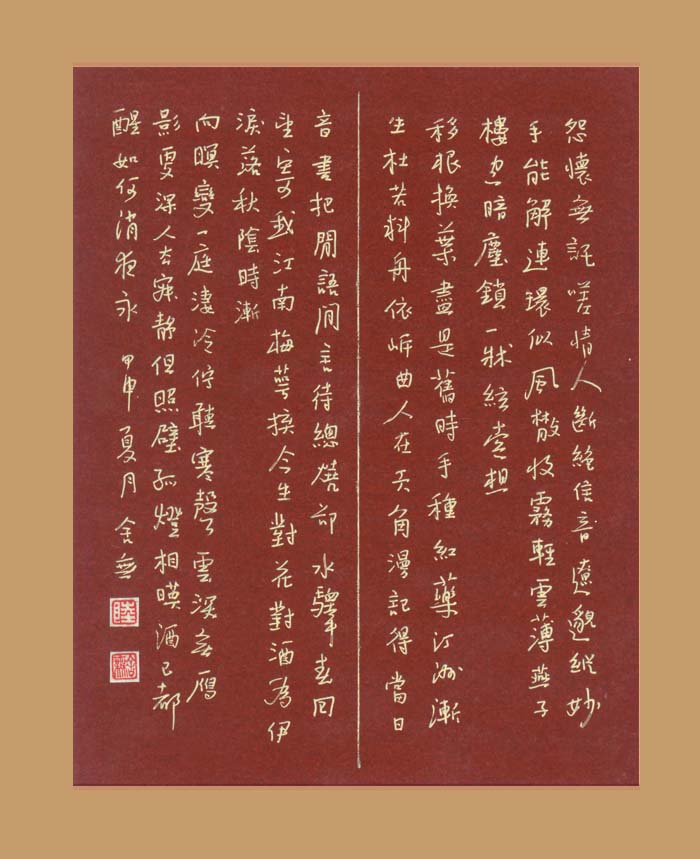 怨懷無託嗟情人斷絕信音遼邈縱妙
手能解連環似風散收霧輕雲薄燕子
樓空暗塵鎖一牀絃索想
移根換葉盡是舊時手種紅藥汀洲漸
生杜若料舟依岸曲人在天角漫記得當日
音書把閒語閒言待總燒卻水驛春回
望寄我江南梅萼拚今生對花對酒為伊
淚落秋陰時漸
向暝變一庭淒冷佇聽寒聲雲深無雁
影更深人去寂靜但照壁孤燈相暎酒已都
醒如何消夜永 甲申夏月 舍無
陸